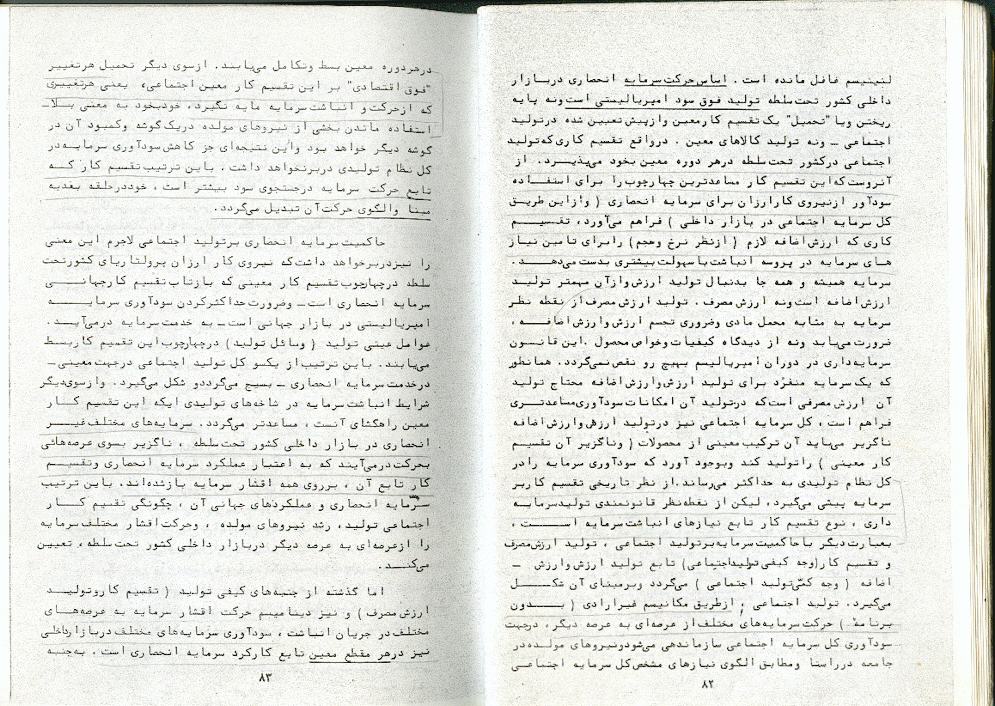 لنینیسم غافل مانده است . اساس حرکت سرمایه انحصاری در بازار
داخلی کشور تحت سلطه تولید فوق سود امپریالیستی است ونه پایه
ریختن ویا "تحمیل" یک تقسیم کار معین وازپیش تعیین شده درتولید
اجتماعی ــ ونه تولید کالاهای معین . درواقع تقسیم کاری که تولید
اجتماعی درکشور تحت سلطه درهر دوره معین بخود می‌پذیـرد. از
آنروست که این تقسیم کار مساعدترین چهارچوب را برای استفـاده
سودآور ازنیروی کارارزان برای سرمایه انحصاری ( وازاین طریق
کل سرمایه اجتماعی در بازار داخلی ) فراهم می‌آورد، تقسیـم
کاری که ارزش اضافه لازم ( ازنظر نرخ وحجم ) رابرای تامین نیاز
های سرمایه در پروسه انباشت با سهولت بیشتری بدست می‌دهـد.
سرمایه همیشه و همه جا بدنبال تولید ارزش وازآن مهمتر تولیـد
ارزش اضافه است ونه ارزش مصرف . تولید ارزش مصرف از نقطه نظر
سرمایه به مثابه محمل مادی وضروری تجسم ارزش وارزش اضافـه ،
ضرورت می‌یابد ونه از دیدگاه کیفیات وخواص محصول .این قانـون
سرمایه‌داری در دوران امپریالیسم بهیچ رو نقض نمی‌گردد. همانطور
که یک سرمایه منفرد برای تولید ارزش وارزش اضافه محتاج تولید
آن ارزش مصرفی است که درتولید آن امکانات سودآوری مساعدتـری
فراهم است ، کل سرمایه اجتماعی نیز درتولید ارزش وارزش اضافه
ناگزیر می‌باید آن ترکیب معینی از محصولات ( وناگزیر آن تقسیم
کار معینی ) راتولید کند وبوجود آورد که سودآوری سرمایه رادر
کل نظام تولیدی به حداکثر می‌رساند .از نظر تاریخی تقسیم کار بر
سرمایه پیشی می‌گیرد، لیکن از نقطه‌نظر قانونمندی تولید سرمایه
داری ، نوع تقسیم کار تابع نیازهای انباشت سرمایه اسـت ،
بعبارت دیگر با حاکمیت سرمایه برتولید اجتماعی ، تولید ارزش مصرف
و تقسیم کار(وجه کیفی تولیداجتماعی) تابع تولید ارزش وارزش ــ
اضافه ( وجه کمّی تولید اجتماعی ) می‌گردد وبرمبنای آن شکـل
می‌گیرد. تولید اجتماعی ، ازطریق مکانیسم غیرارادی ( بـدون
برنامه ) حرکت سرمایه‌های مختلف از عرصه‌ای به عرصه دیگر، درجهت
سودآوری کل سرمایه اجتماعی سازماندهی می‌شود ونیروهای مولده در
جامعه درراستا ومطابق الگوی نیازهای مشخص کل سرمایه اجتماعـی
۸۲
درهردوره معین بسط وتکامل می‌یابند. ازسوی دیگر تحمیل هرتغییر
"فوق اقتصادی" بر این تقسیم کار معین اجتماعی، یعنی هرتغییری
که ازحرکت و انباشت سرمایه مایه نگیرد، خودبخود به معنی بلاـ
استفاده ماندن بخشی از نیروهای مولده دریک گوشه وکمبود آن در
گوشه دیگر خواهد بود واین نتیجه‌ای جز کاهش سودآوری سرمایه در
کل نظام تولیدی دربرنخواهد داشت . باین ترتیب تقسیم کار کـه
تابع حرکت سرمایه درجستجوی سود بیشتر است ، خود درحلقه بعدبه
مبنا والگوی حرکت آن تبدیل می‌گردد.
حاکمیت سرمایه انحصاری برتولید اجتماعی لاجرم این معنی
را نیزدربرخواهد داشت که نیروی کار ارزان پرولتاریای کشورتحت
سلطه درچهارچوب تقسیم کار معینی که بازتاب تقسیم کارجهانـی
سرمایه انحصاری است ــ وضرورت حداکثرکردن سودآوری سرمایـه
امپریالیستی در بازار جهانی است ــ به خدمت سرمایه درمی‌آیـد.
عوامل عینی تولید ( وسائل تولید) درچهارچوب این تقسیم کاربسط
می‌یابند. باین ترتیب از یکسو کل تولید اجتماعی درجهت معینی ــ
درخدمت سرمایه انحصاری ــ بسیج می‌گرددو شکل می‌گیرد. وازسوی‌دیگر
شرایط انباشت سرمایه در شاخه‌های تولیدی ایکه این تقسیم کـار
معین راهگشای آنست ، مساعدتر می‌گردد. سرمایه‌های مختلف غیـر
انحصاری در بازار داخلی کشور تحت سلطه ، ناگزیر بسوی عرصه‌هائی
بحرکت درمی‌آیند که به اعتبار عملکرد سرمایه انحصاری وتقسیـم
کار تابع آن ، برروی همه اقشار سرمایه بازشده‌اند. باین ترتیب
سرمایه انحصاری و عملکردهای جهانی آن ، چگونگی تقسیم کـار
اجتماعی تولید، رشد نیروهای مولده ، وحرکت اقشار مختلف سرمایه
را ازعرصه‌ای به عرصه دیگر دربازار داخلی کشور تحت سلطه ، تعیین
می‌کنـد.
اما گذشته از جنبه‌های کیفی تولید ( تقسیم کاروتولیـد
ارزش مصرف ) و نیز دینامیسم حرکت اقشار سرمایه به عرصه‌هـای
مختلف در جریان انباشت ، سودآوری سرمایه‌های مختلف دربازارداخلی
نیز درهر مقطع معین تابع کارکرد سرمایه انحصاری است . به‌جنبه
۸۳